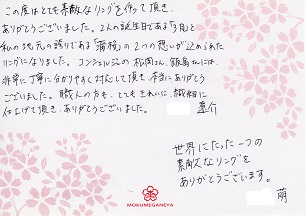 この度はとても素敵なリングを作って頂き、
ありがとうございました。2人の誕生月である「3月」と
私の地元の誇りである「薄桜」の2つの想いが込められた
リングになりました。コンシェルジュの松岡さん、飯島さんには、
非常に丁寧に分かりやすく対応して頂き、本当にありがとう
ございました。職人の方も、とてもきれいに、繊細に
仕上げて頂き、ありがとうございました。
世界にたった一つの
素敵なリングを
ありがとうございます。
萌
MOKUMEGANEYA